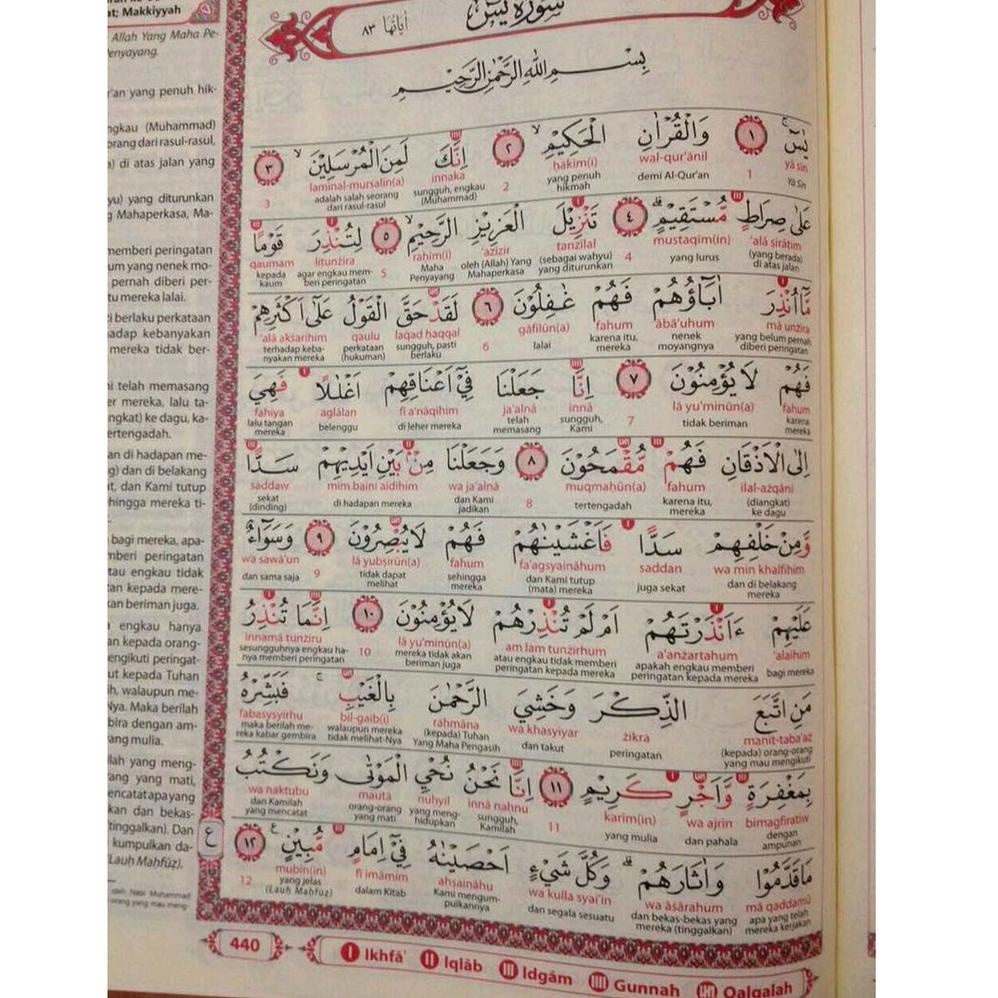 سورة يس
اٰيَاتُهَا ٨٣
بِسْمِ اللّٰهِ الرَّحْمٰنِ الرَّحِيْمِ
يٰسۤ ۚ ١ وَالْقُرْاٰنِ الْحَكِيْمِۙ ٢ اِنَّكَ لَمِنَ الْمُرْسَلِيْنَۙ ٣
yā sīn 1 wal-qur'ānil ḥakīm(i) 2 innaka laminal-mursalīn(a) 3
Yā Sīn demi Al-Qur'an yang penuh hikmah sungguh, engkau (Muhammad) adalah salah seorang dari rasul-rasul
عَلٰى صِرَاطٍ مُّسْتَقِيْمٍۗ ٤ تَنْزِيْلَ الْعَزِيْزِ الرَّحِيْمِۙ ٥ لِتُنْذِرَ قَوْمًا
'alā ṣirāṭim mustaqīm(in) 4 tanzīlal 'azīzir raḥīm(i) 5 litunżira qaumam
(yang berada) di atas jalan yang lurus (sebagai wahyu) yang diturunkan oleh (Allah) Yang Mahaperkasa Maha Penyayang agar engkau memberi peringatan kepada kaum
مَّآ اُنْذِرَ اٰبَاۤؤُهُمْ فَهُمْ غٰفِلُوْنَ ٦ لَقَدْ حَقَّ الْقَوْلُ عَلٰٓى اَكْثَرِهِمْ
mā unżira ābā'uhum fahum gāfilūn(a) 6 laqad ḥaqqal qaulu 'alā akṡarihim
yang belum pernah diberi peringatan nenek moyangnya karena itu, mereka lalai sungguh, pasti berlaku perkataan (hukuman) terhadap kebanyakan mereka
فَهُمْ لَا يُؤْمِنُوْنَ ٧ اِنَّا جَعَلْنَا فِيْٓ اَعْنَاقِهِمْ اَغْلٰلًا فَهِيَ
fahum lā yu'minūn(a) 7 innā ja'alnā fī a'nāqihim aglālan fahiya
karena mereka tidak beriman sungguh, Kami telah memasang di leher mereka belenggu lalu tangan mereka
اِلَى الْاَذْقَانِ فَهُمْ مُّقْمَحُوْنَ ٨ وَجَعَلْنَا مِنْۢ بَيْنِ اَيْدِيْهِمْ سَدًّا
ilal-ażqāni fahum muqmaḥūn(a) 8 wa ja'alnā mim baini aidīhim saddaw
(diangkat) ke dagu karena itu, mereka tertengadah dan Kami jadikan di hadapan mereka sekat (dinding)
وَّمِنْ خَلْفِهِمْ سَدًّا فَاَغْشَيْنٰهُمْ فَهُمْ لَا يُبْصِرُوْنَ ٩ وَسَوَاۤءٌ
wa min khalfihim saddan fa'agsyaināhum fahum lā yubṣirūn(a) 9 wa sawā'un
dan di belakang mereka juga sekat dan Kami tutup (mata) mereka sehingga mereka tidak dapat melihat dan sama saja
عَلَيْهِمْ ءَاَنْذَرْتَهُمْ اَمْ لَمْ تُنْذِرْهُمْ لَا يُؤْمِنُوْنَ ١٠ اِنَّمَا تُنْذِرُ
'alaihim a'anżartahum am lam tunżirhum lā yu'minūn(a) 10 innamā tunżiru
bagi mereka apakah engkau memberi peringatan kepada mereka atau engkau tidak memberi peringatan kepada mereka mereka tidak akan beriman juga sesungguhnya engkau hanya memberi peringatan
مَنِ اتَّبَعَ الذِّكْرَ وَخَشِيَ الرَّحْمٰنَ بِالْغَيْبِۚ فَبَشِّرْهُ
manit-taba'aż żikra wa khasyiyar raḥmāna bil-gaib(i) fabasysyirhu
(kepada) orang-orang yang mau mengikuti peringatan dan takut (kepada) Tuhan Yang Maha Pengasih walaupun mereka tidak melihat-Nya maka berilah mereka kabar gembira
بِمَغْفِرَةٍ وَّاَجْرٍ كَرِيْمٍ ١١ اِنَّا نَحْنُ نُحْيِ الْمَوْتٰى وَنَكْتُبُ
bimagfiratiw wa ajrin karīm(in) 11 innā naḥnu nuḥyil mautā wa naktubu
dengan ampunan dan pahala yang mulia sungguh, Kamilah yang menghidupkan orang-orang yang mati dan Kamilah yang mencatat
مَا قَدَّمُوْا وَاٰثَارَهُمْۗ وَكُلَّ شَيْءٍ اَحْصَيْنٰهُ فِيْٓ اِمَامٍ مُّبِيْنٍ ࣖ ١٢
mā qaddamū wa āṡārahum wa kulla syai'in aḥṣaināhu fī imāmim mubīn(in) 12
apa yang telah mereka kerjakan dan bekas-bekas yang mereka (tinggalkan) dan segala sesuatu Kami mengumpulkannya dalam Kitab yang jelas (Lauḥ Maḥfūẓ)
ع
440 Ikhfā' Iqlāb Idgām Gunnah Qalqalah
at; Makkiyyah
Allah Yang Maha Pe-
enyayang.
'an yang penuh hik-
ngkau (Muhammad)
orang dari rasul-rasul,
) di atas jalan yang
yu) yang diturunkan
g Mahaperkasa, Ma-
memberi peringatan
um yang nenek mo-
pernah diberi per-
tu mereka lalai.
i berlaku perkataan
adap kebanyakan
mereka tidak ber-
i telah memasang
er mereka, lalu ta-
ngkat) ke dagu, ka-
ertengadah.
an di hadapan me-
g) dan di belakang
t, dan Kami tutup
hingga mereka ti-
bagi mereka, apa-
mberi peringatan
tau engkau tidak
an kepada mere-
kan beriman juga.
engkau hanya
an kepada orang-
engikuti peringat-
ut kepada Tuhan
h, walaupun me-
Nya. Maka berilah
bira dengan am-
ang mulia.
lah yang meng-
ang yang mati,
encatat apa yang
kan dan bekas-
tinggalkan). Dan
kumpulkan da-
Lauḥ Maḥfūẓ).
oleh Nabi Muhammad
orang yang mau meng-